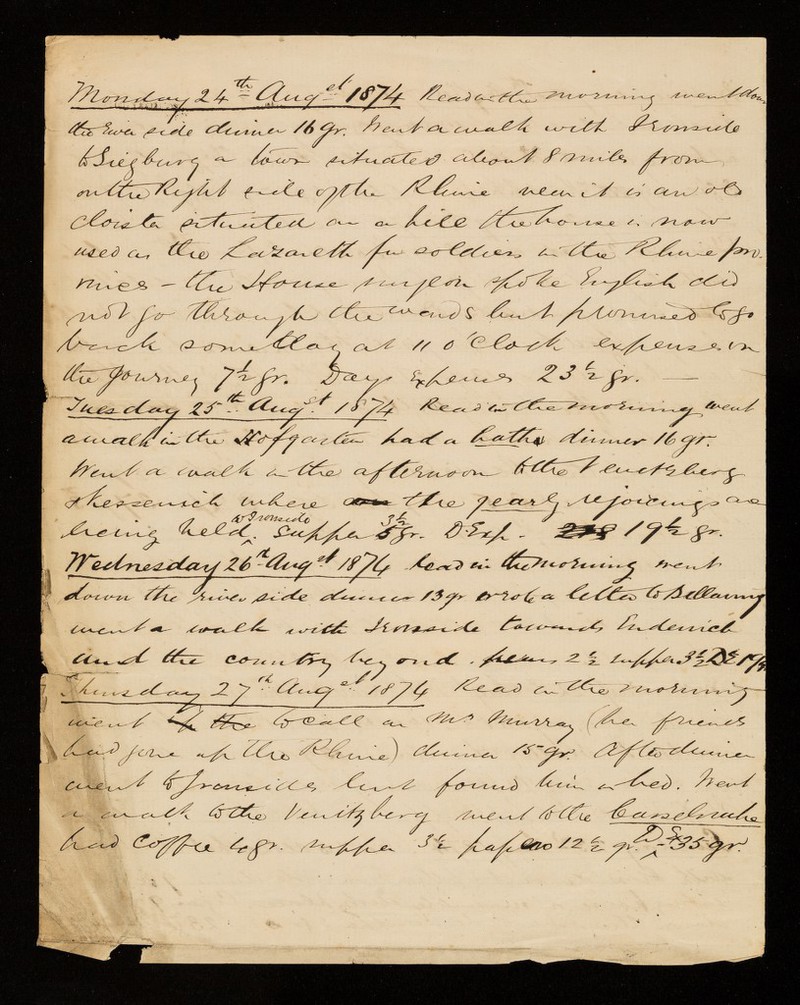 Monday 24th Augst 1874 Read in the morning went down
the river side dinner 16 gr. Went a walk with Ironside
to Siegburg a town situated about 8 miles from
on the Right side of the Rhine near it is an old
cloister situated on a hill the house is now
used as the Lazareth for soldiers in the Rhine pro-
vinces - the House surgeon spoke English did
not go through the wards but promised to go
back some day at 11 o'Clock expenses in
the Journey 7½ gr. Days Expenses 23½ gr. —
Tuesday 25th Augst. 1874 Read in the morning went
a walk in the Hofgarten had a bath dinner 16 gr.
Went a walk in the afternoon to the Venitzberg
& Kessenich where the yearly rejoicings are
being held w Ironside supper 3½ gr. D. Exp. 19½ gr.
Wednesday 26th Augst 1874 Read in the morning went
down the river side dinner 13 gr wrote a letter to Bellamy
went a walk with Ironside towards Endenich
and the country beyond. pears 2½ supper 3½ DE 19
Thursday 27th Augst 1874 Read in the morning
went up the to call on Mr Murray (her friends
had gone up the Rhine) dinner 15 gr. After dinner
went to Ironsides but found him in bed. Went
a walk to the Venitzberg went to the Casselsruhe
had Coffee 4 gr. supper 3½ paper 12½ gr. D Ex 35 gr.